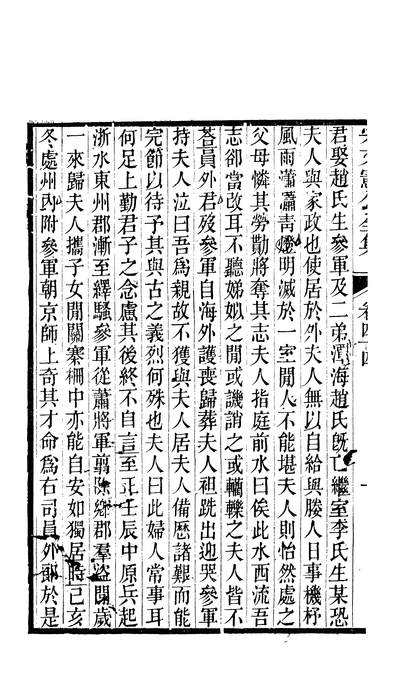 君娶趙氏生參軍及二弟潭海趙氏旣亡繼室李氏生某恐
夫人與家政也使居於外夫人無以自給與媵人日事機杼
風雨瀟瀟靑燈明滅於一室閒人不能堪夫人則怡然處之
父母憐其勞勩將奪其志夫人指庭前水曰俟此水西流吾
志卻當改耳不聽娣姒之閒或譏誚之或轥轢之夫人皆不
荅員外君歿參軍自海外護喪歸葬夫人袒跣出迎哭參軍
持夫人泣曰吾爲親故不獲與夫人居夫人備歷諸艱而能
完節以待予其與古之義烈何殊也夫人曰此婦人常事耳
何足上勤君子之念慮其後終不自言至正壬辰中原兵起
浙水東州郡漸至繹騷參軍從蕭將軍翦除鄉郡羣盜閱歲
一來歸夫人攜子女閒關寨柵中亦能自安如獨居時己亥
冬處州內附參軍朝京師上奇其才命爲右司員外郞於是
宋文憲公全集
卷四四